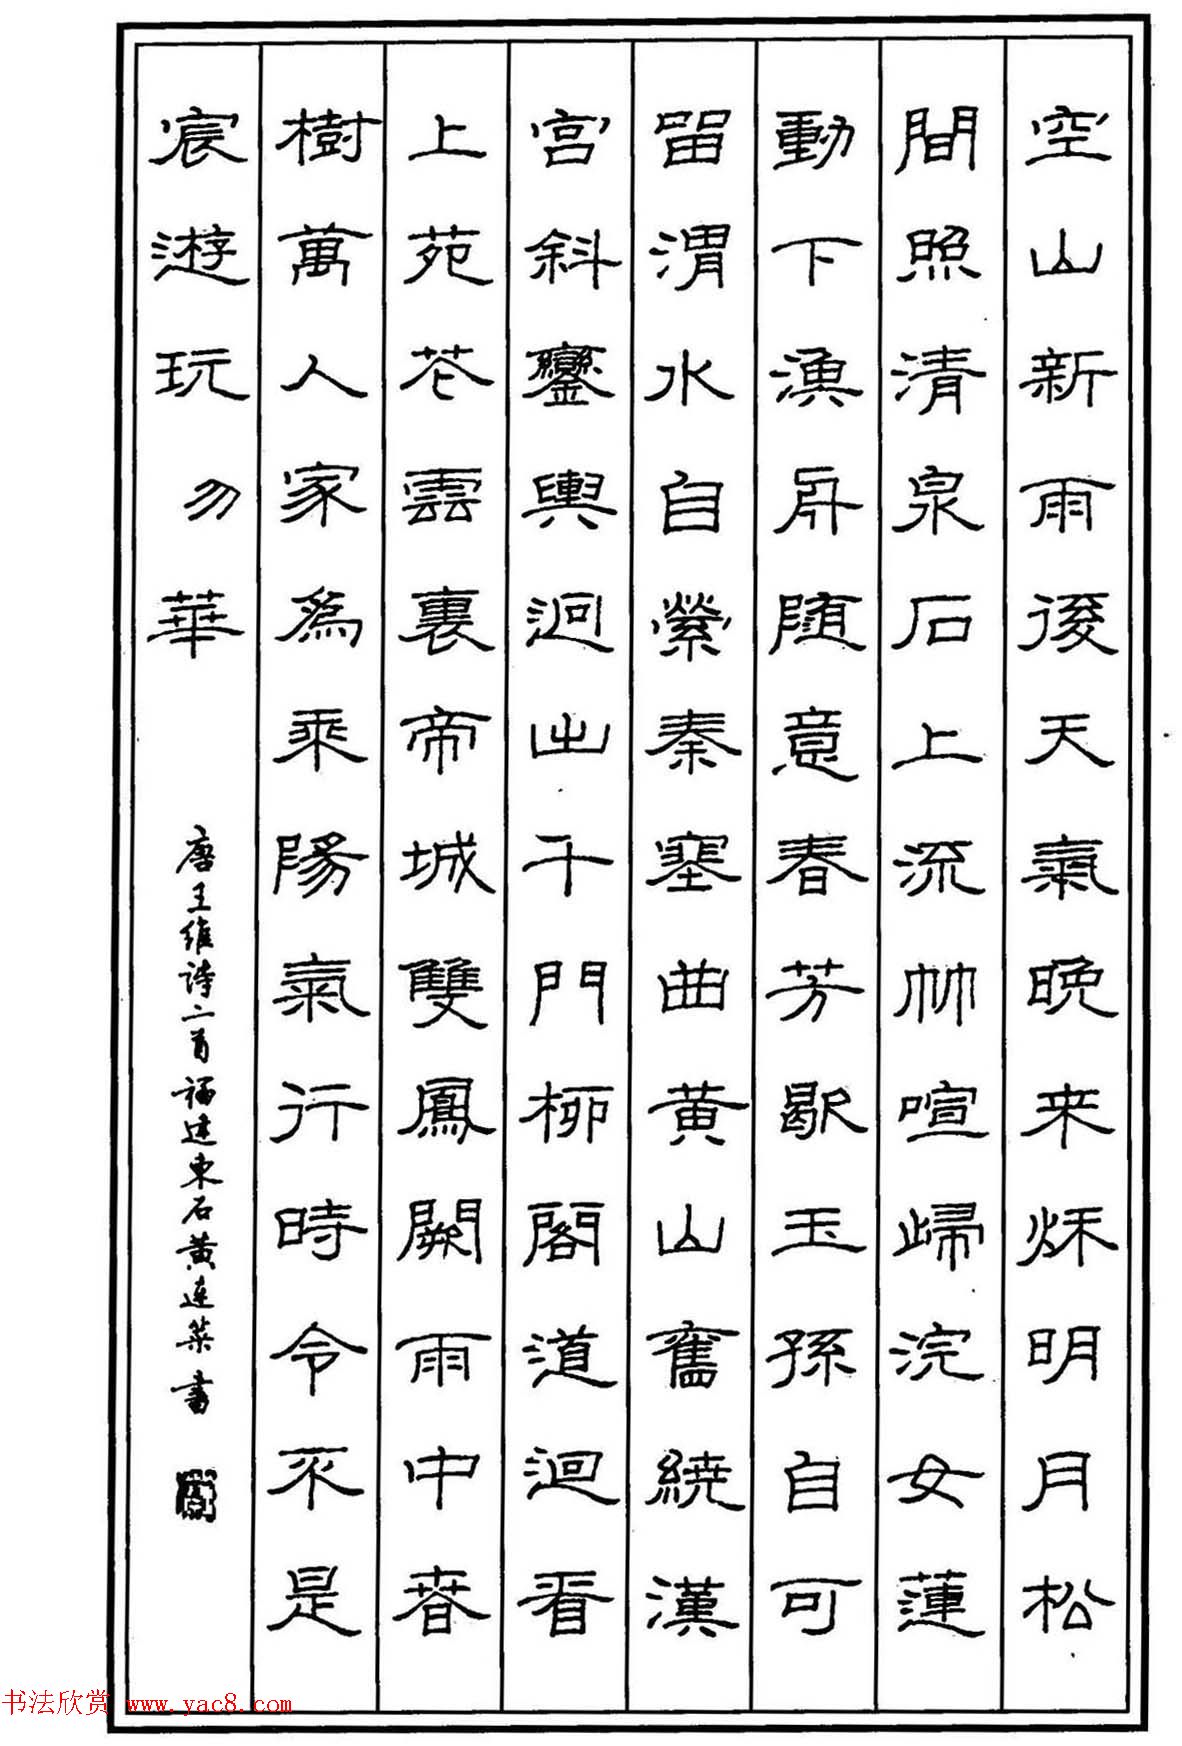 空山新雨後天氣晚来秌明月松
間照清泉石上流竹喧歸浣女蓮
動下漁舟随意春芳歇玉孫自可
留渭水自縈秦塞曲黄山舊繞漢
宮斜鑾輿迥出千門柳閣道迴看
上苑花雲裏帝城雙鳳闕雨中春
樹萬人家為乘陽氣行時令不是
宸遊玩勿華
唐王維诗二首福建東石黄連書
书法欣赏 www.yac8.com